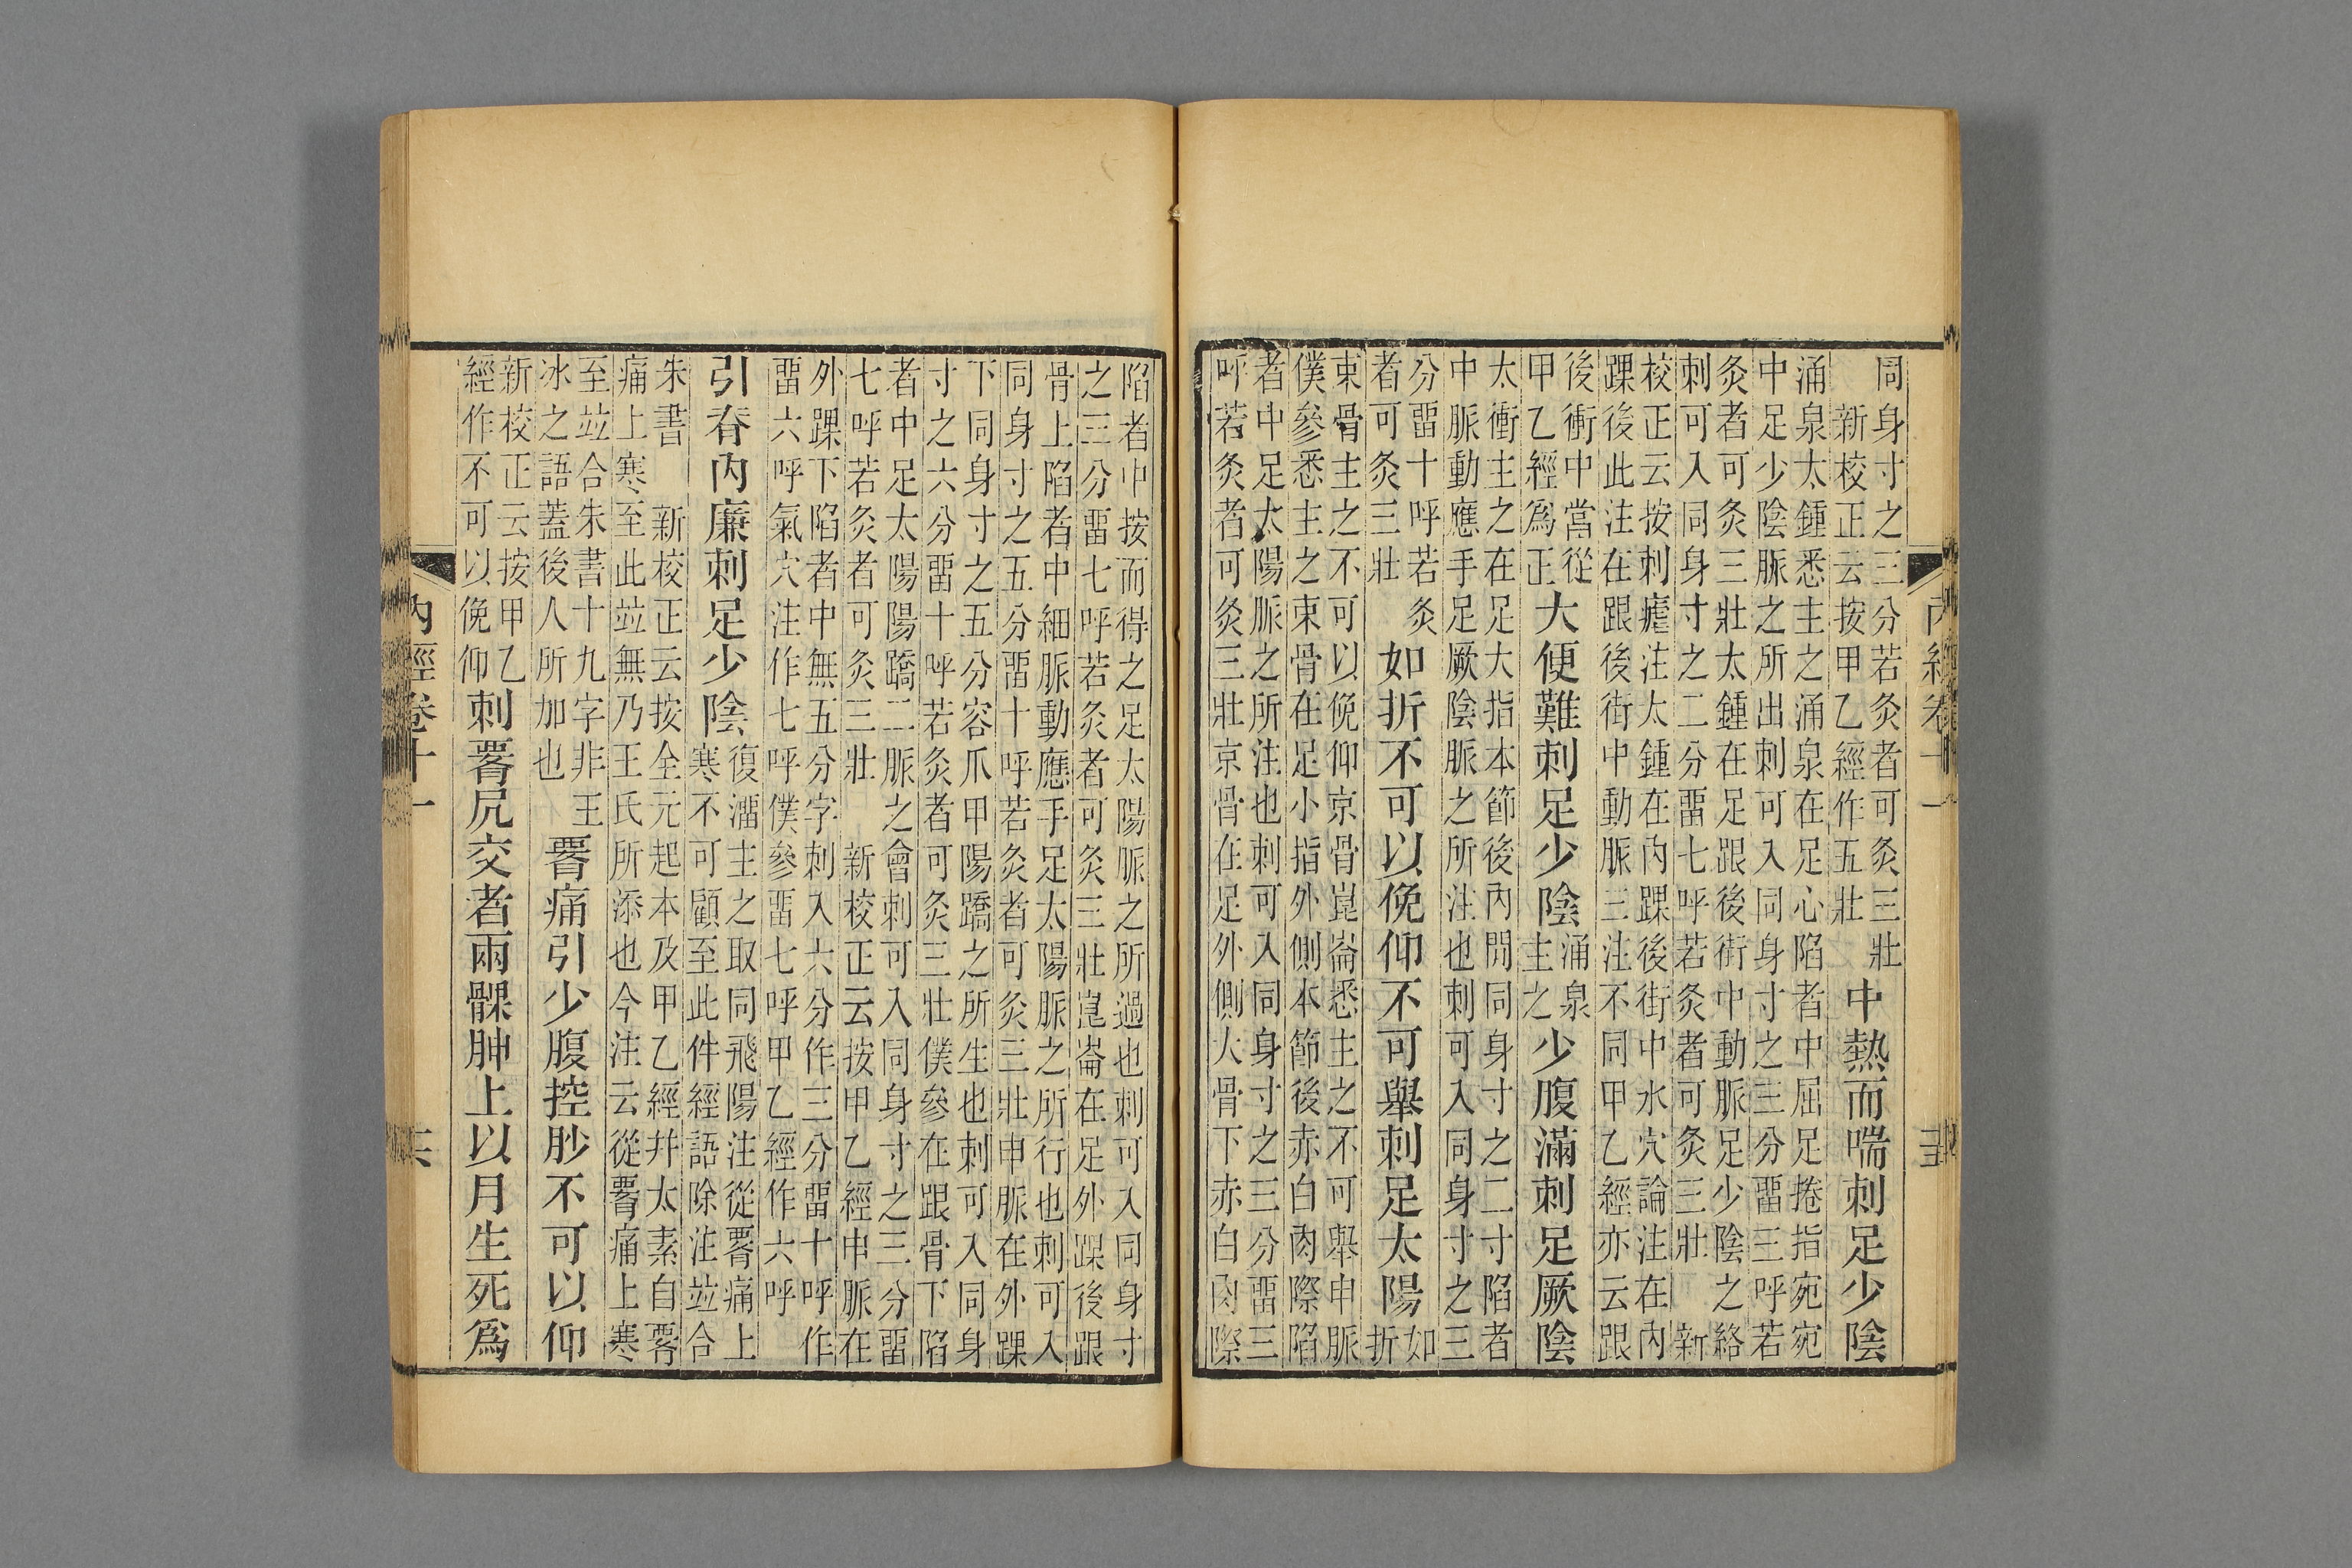 同身寸之三分若灸者可灸三壯
新校正云按甲乙經作五壯
中熱而喘刺足少陰
涌泉太鍾悉主之涌泉在足心陷者中屈足捲指宛宛
中足少陰脈之所出刺可入同身寸之三分畱三呼若
灸者可灸三壯太鍾在足跟後街中動脈足少陰之絡
刺可入同身寸之二分畱七呼若灸者可灸三壯 新
校正云按刺瘧注太鍾在內踝後街中水穴論注在內
踝後此注在跟後街中動脈三注不同甲乙經亦云跟
後衝中當從
甲乙經爲正
大便難刺足少陰
涌泉
主之
少腹滿刺足厥陰
太衝主之在足大指本節後內閒同身寸之二寸陷者
中脈動應手足厥陰脈之所注也刺可入同身寸之三
分畱十呼若灸
者可灸三壯
如折不可以俛仰不可舉刺足太陽
如
折
束骨主之不可以俛仰京骨崑崙悉主之不可舉申脈
僕參悉主之束骨在足小指外側本節後赤白肉際陷
者中足太陽脈之所注也刺可入同身寸之三分畱三
呼若灸者可灸三壯京骨在足外側大骨下赤白肉際
內經卷十一
陷者中按而得之足太陽脈之所過也刺可入同身寸
之三分畱七呼若灸者可灸三壯崑崙在足外踝後跟
骨上陷者中細脈動應手足太陽脈之所行也刺可入
同身寸之五分畱十呼若灸者可灸三壯申脈在外踝
下同身寸之五分容爪甲陽蹻之所生也刺可入同身
寸之六分畱十呼若灸者可灸三壯僕參在跟骨下陷
者中足太陽陽蹻二脈之會刺可入同身寸之三分畱
七呼若灸者可灸三壯 新校正云按甲乙經申脈在
外踝下陷者中無五分字刺入六分作三分畱十呼作
畱六呼氣穴注作七呼僕參畱七呼甲乙經作六呼
引脊內廉刺足少陰
復溜主之取同飛陽注從腰痛上
寒不可顧至此件經語除注竝合
朱書 新校正云按全元起本及甲乙經幷太素自腰
痛上寒至此竝無乃王氏所添也今注云從腰痛上寒
至竝合朱書十九字非王
冰之語蓋後人所加也
腰痛引少腹控䏚不可以仰
新校正云按甲乙
經作不可以俛仰
刺腰尻交者兩髁胂上以月生死爲
內經卷十一